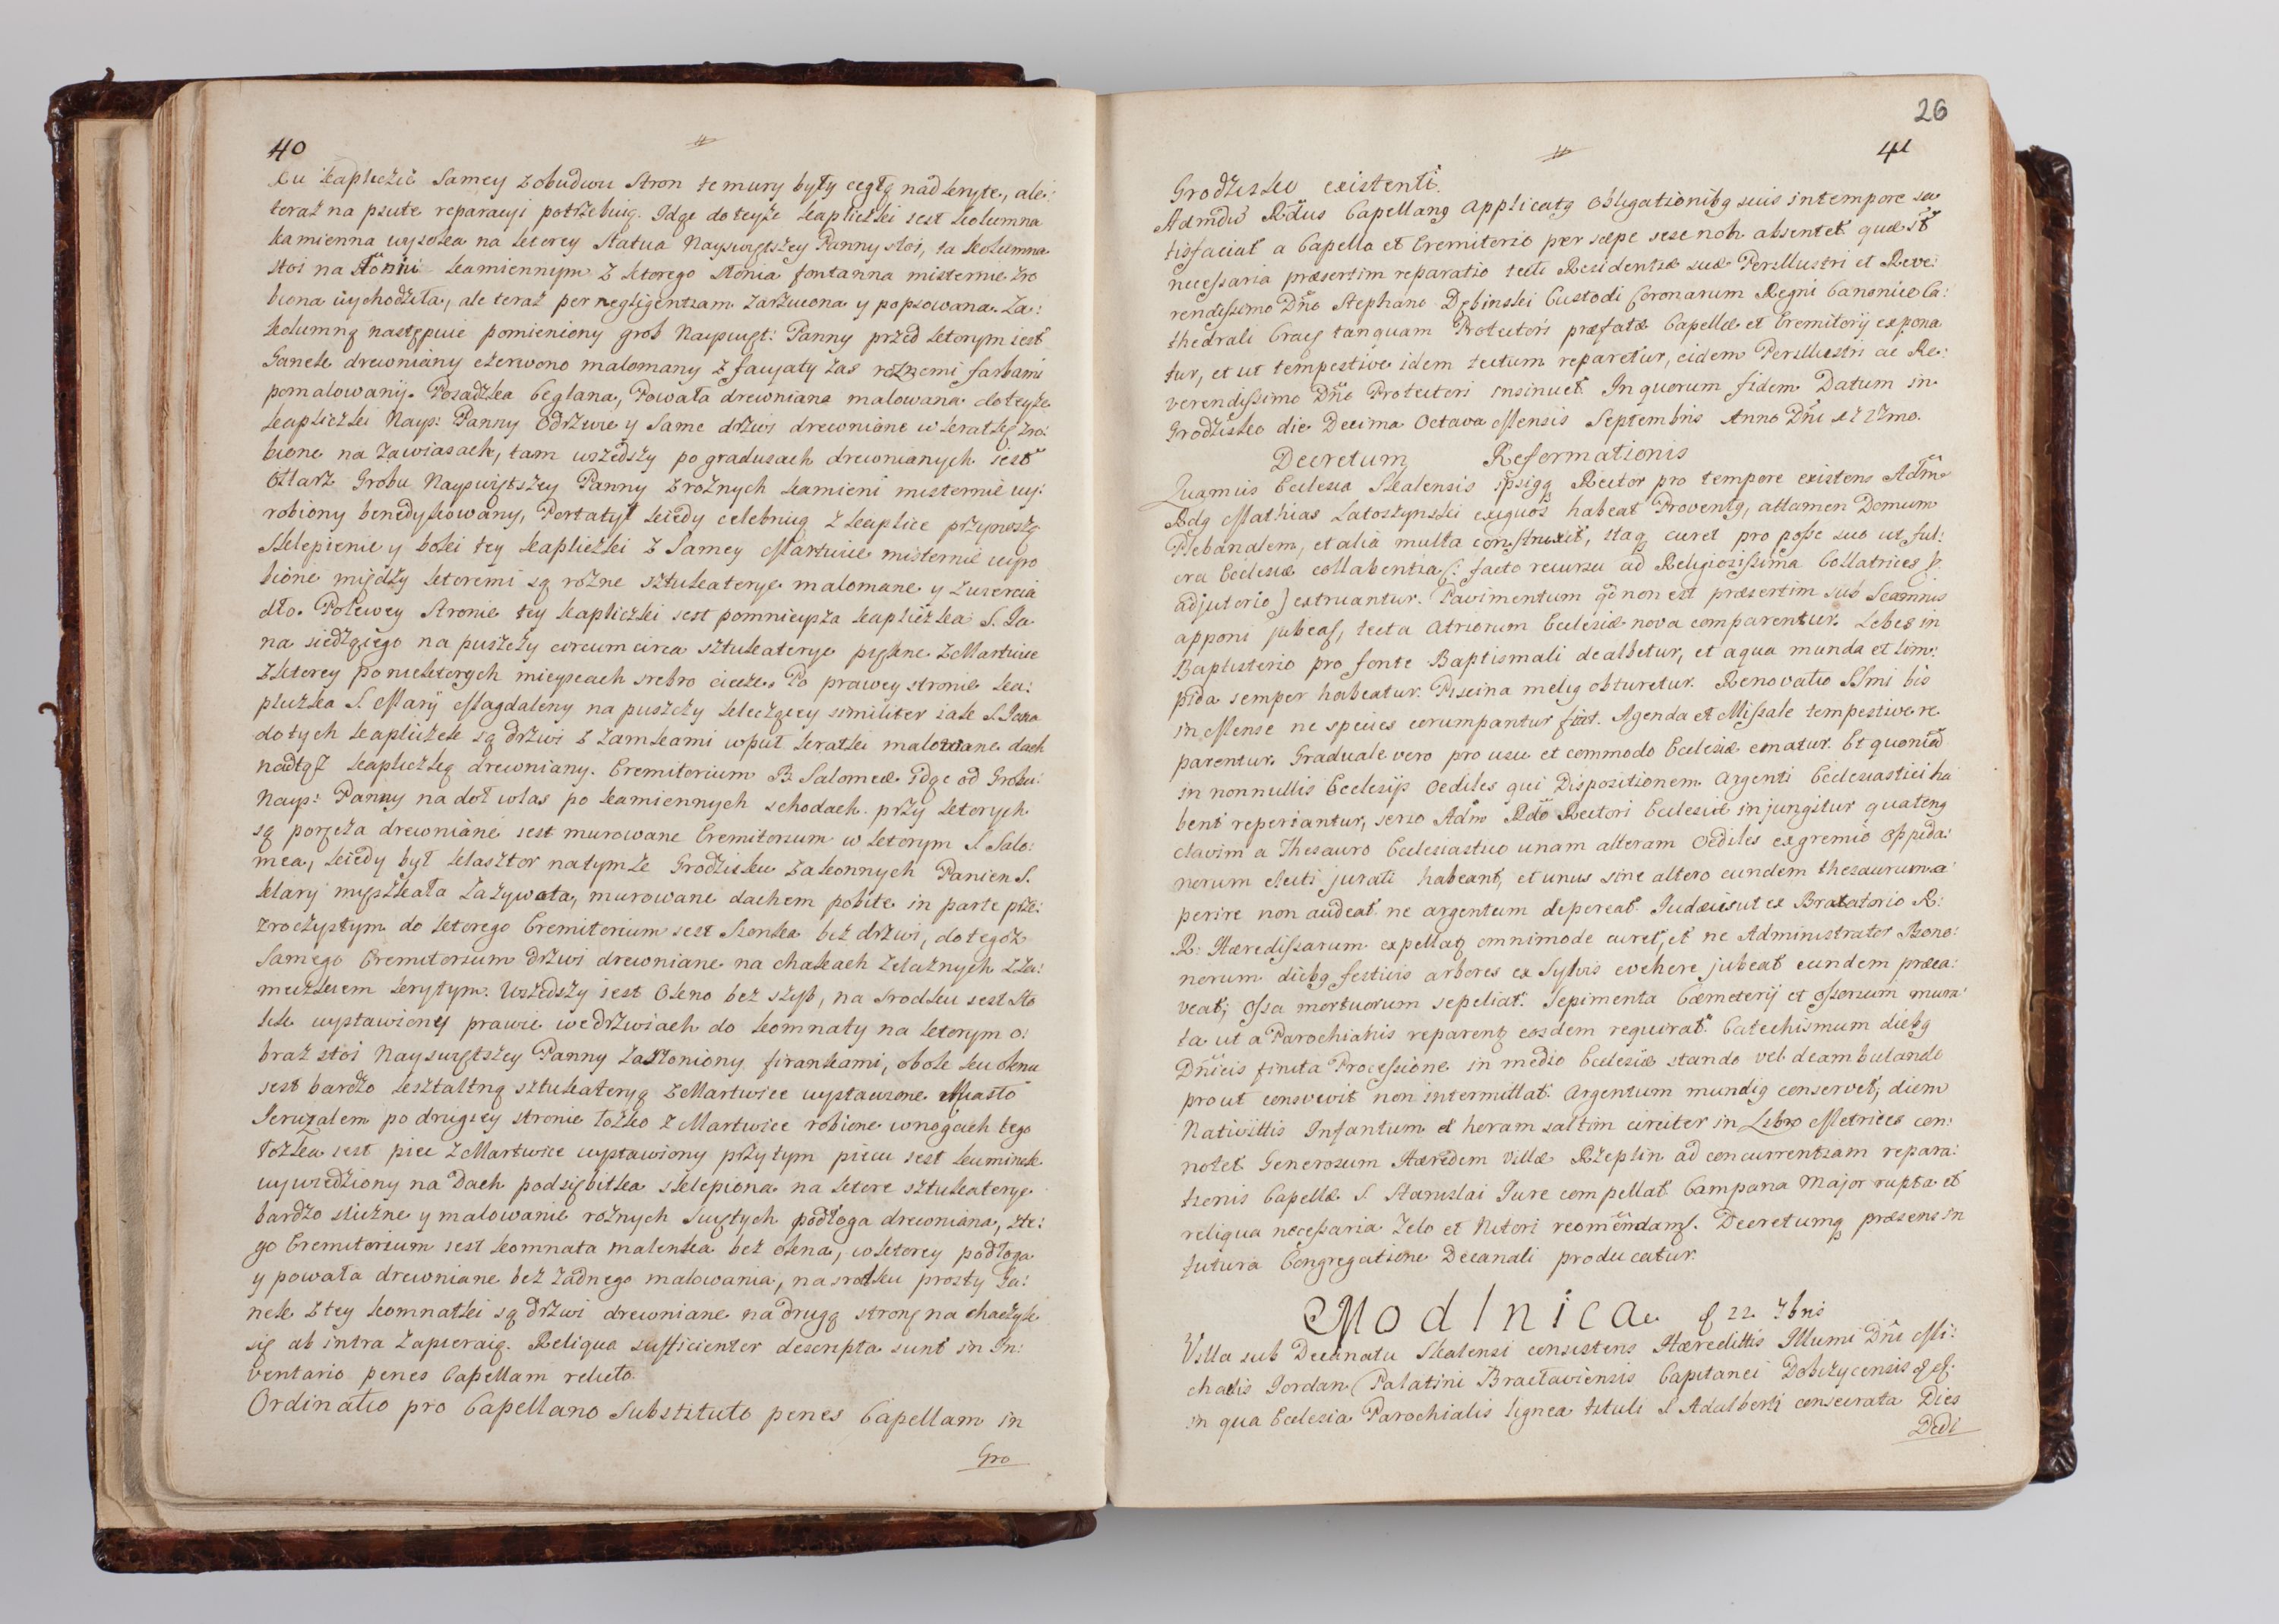 40
ku kapliczce samey z obudwu stron te mury były cegłą nadkryte, ale
teraz na psute reparacyi potrzebuią. Idąc do teyże kapliczki iest kolumna
kamienna wysoka na ktorey statua Nayswiętszey Panny stoi, ta kolumna
stoi na słoniu kamiennym z ktorego słonia fontanna misternie zro
biona wychodziła, ale teraz per negligentiam zarzucona y popsowana. Za:
kolumną następuie pomieniony grob Nayswięt: Panny przed ktorym iest
Ganek drewniany czerwono malomany z facyaty zas rożnemi farbami
pomalowany. Posadzka Ceglana, Powała drewniana malowana do teyże
kapliczki Nays: Panny Odrzwie y same drzwi drewniane w kratkę zro:
bione na zawiasach, tam wszedszy po gradusach drewnianych iest
Ołtarz Grobu Nayswiętszey Panny z rożnych kamieni misternie wy:
robiony benedykowany, Portatyl kiedy celebruią z kaplice przynoszą
Sklepienie y boki tey kapliczki z samey Martwice misternie wyro
bione między ktoremi są rożne sztukaterye malomane y zwiercia
dło. Po lewey stronie tey kapliczki iest pomnieysza kapliczka S. Ja
na siedzącego na puszczy circumcirca sztukaterye piękne z Martwice
z ktorey po niektorych mieyscach srebro ciecze. Po prawey stronie ka:
pliczka S. Maryi Magdaleny na puszczy klęczącey similiter iak S. Jana
do tych kapliczek są drzwi z zamkami wpuł kratki malowane dach
nad tąż kapliczką drewniany. Eremitorium B. Salomeæ idąc od Grobu
Nays: Panny na doł w las po kamiennych schodach przy ktorych
są poręcza drewniane iest murowane Eremitorium w ktorym S. Salo:
mea, kiedy był klasztor na tymże Grodzisku zakonnych Panien S.
Klary mięszkała zażywała, murowane dachem pobite in parte prze:
zroczystym do ktorego Eremitorium iest sionka bez drzwi, do tegoż
samego Eremitorium drzwi drewniane na chakach żelaznych z za:
meczkiem krytym. Wszedszy iest Okno bez szyb, na srodku iest sto
lik wystawiony prawie we drzwiach do komnaty na ktorym o:
braz stoi Nayswiętszey Panny zasłoniony firankami, obok ku oknu
iest bardzo ksztaltną sztukateryą z Martwice wystawione Miasto
Jeruzalem po drugiey stronie łożko z Martwice robione w nogach tego
łożka iest piec z Martwice wystawiony przy tym piecu iest kuminek
wywiedziony na Dach podsiębitka sklepiona na ktore sztukaterye
bardzo sliczne y malowanie rożnych Swiętych podłoga drewniana, z te:
go Eremitorium iest komnata malenka bez okna, w ktorey podłoga
y powała drewniane bez żadnego malowania, na srodku prosty Ga:
nek z tey komnatki są drzwi drewniane na drugą stronę na chaczyk
się ab intra zapieraią. Reliqua sufficienter descripta sunt in In:
ventario penes Capellam relicto.
Ordinatio pro Capellano Substituto penes Capellam in
Gro
26
41
Grodzisko existenti.
Admdũ Rdus Capellang Applicatg Obligationibg suis in tempore sa
tisfaciat a Capella et Eremitorio per sæpe sese non absentet quæ st̃
necessaria præsertim reparatio tecti Residentiæ suæ Perillustri et Reve:
rendissimo Dño Stephano Dębinski Custodi Coronarum Regni Canonico Ca:
thedrali Crac̃ tanquam Protectori præfatæ Capellæ et Eremitorij expona
tur, et ut tempestive idem tectum reparetur, eidem Perillustri ac Re:
verendissimo Dño Protectori insinuet. In quorum fidem Datum in
Grodzisko die Decima Octava Mensis Septembris Anno Dñi 1727mo.
Decretum Reformationis
Quamvis Ecclesia Skalensis ipsigq Rector pro tempore existens Adm̃
Rdg Mathias Latoszynski exiguos habeat Proventg, attamen Domum
Plebanalem, et alia multa construxit, itaq curet pro posse suo ut ful:
cra Ecclesiæ collabentia (: facto recursu ad Religiosissima Collatrices p
adjutorio) extruantur. Pavimentum qđ non est præsertim sub Scamnis
apponi jubeat, tecta Atriorum Ecclesiæ nova comparentur. Lebes in
Baptisterio pro fonte Baptismali dealbetur, et aqua munda et lim:
pida semper habeatur. Piscina melig obturetur. Renovatio SSmi bis
in Mense ne species corrumpantur fiat. Agenda et Missale tempestive re
parentur. Graduale vero pro usu et commodo Ecclesiæ ematur. Et quoniã
in nonnullis Ecclesijs Oediles qui Dispositionem Argenti Ecclesiastici ha
bent reperiantur, serio Adm̃ Rdo Rectori Ecclesiæ injungitur quateng
clavim a Thesauro Ecclesiastico unam alteram Oediles ex gremio Oppida:
norum electi jurati habeant, et unus sine altero eundem thesaurum a
perire non audeat ne argentum depereat. Judæus ut ex Braxatorio R:
R: Hæredissarum expellatg omnimode curet, et ne Administrator Bono:
norum diebg festivis arbores ex Sylvis evehere jubeat eundem præca:
veat, Ossa mortuorum sepeliat. Sepimenta Cæmeterij et Ossorium mura
ta ut a Parochianis reparentg eosdem requirat. Catechismum diebg
Dñicis finita Processione in medio Ecclesiæ stando vel deambulando
prout consvevit non intermittat. Argentum mundig conservet, diem
Nativittis Infantum et horam saltim circiter in Libro Metrices con:
notet. Generosum Hæredem Villæ Rzeplin ad concurrentiam repara:
tionis Capellæ S. Stanislai Jure compellat. Campana Major rupta et
reliqua necessaria Zelo et Nitori recom̃endantg. Decretumq præsens in
futura Congregatione Decanali producatur.
Modlnica d 22 7bris
Villa sub Decanatu Skalensi consistens Hæredittis Illumi Dñi Mi:
chaelis Jordan Palatini Bractaviensis Capitanei Dobczycensis
in qua Ecclesia Parochialis lignea tituli S Adalberti consecrata Dies
Dedi